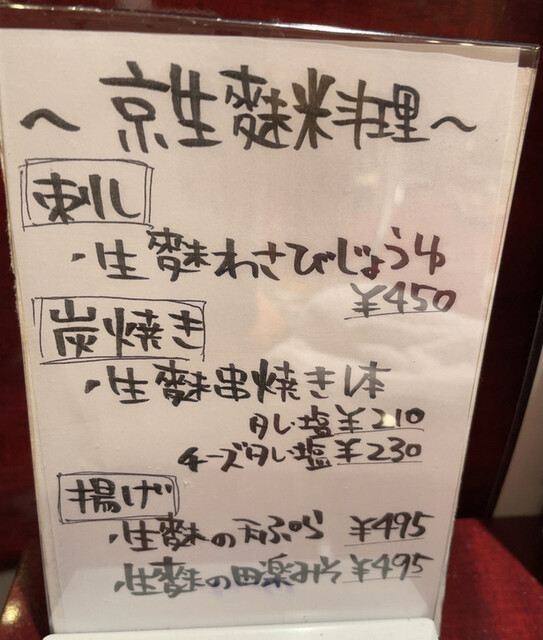 ～京生麩料理～
刺し
・生麩わさびじょうゆ
¥450
炭焼き
・生麩串焼き1本
タレ・塩¥210
チーズタレ・塩¥230
揚げ
・生麩の天ぷら ¥495
・生麩の田楽みそ¥495